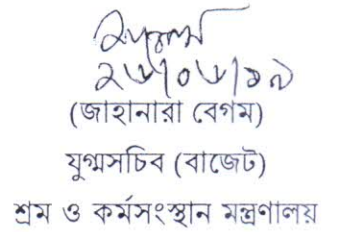 ২৬/০৬/১৯
(জাহানারা বেগম)
যুগ্মসচিব (বাজেট)
শ্রম ও কর্মসংস্থান মন্ত্রণালয়